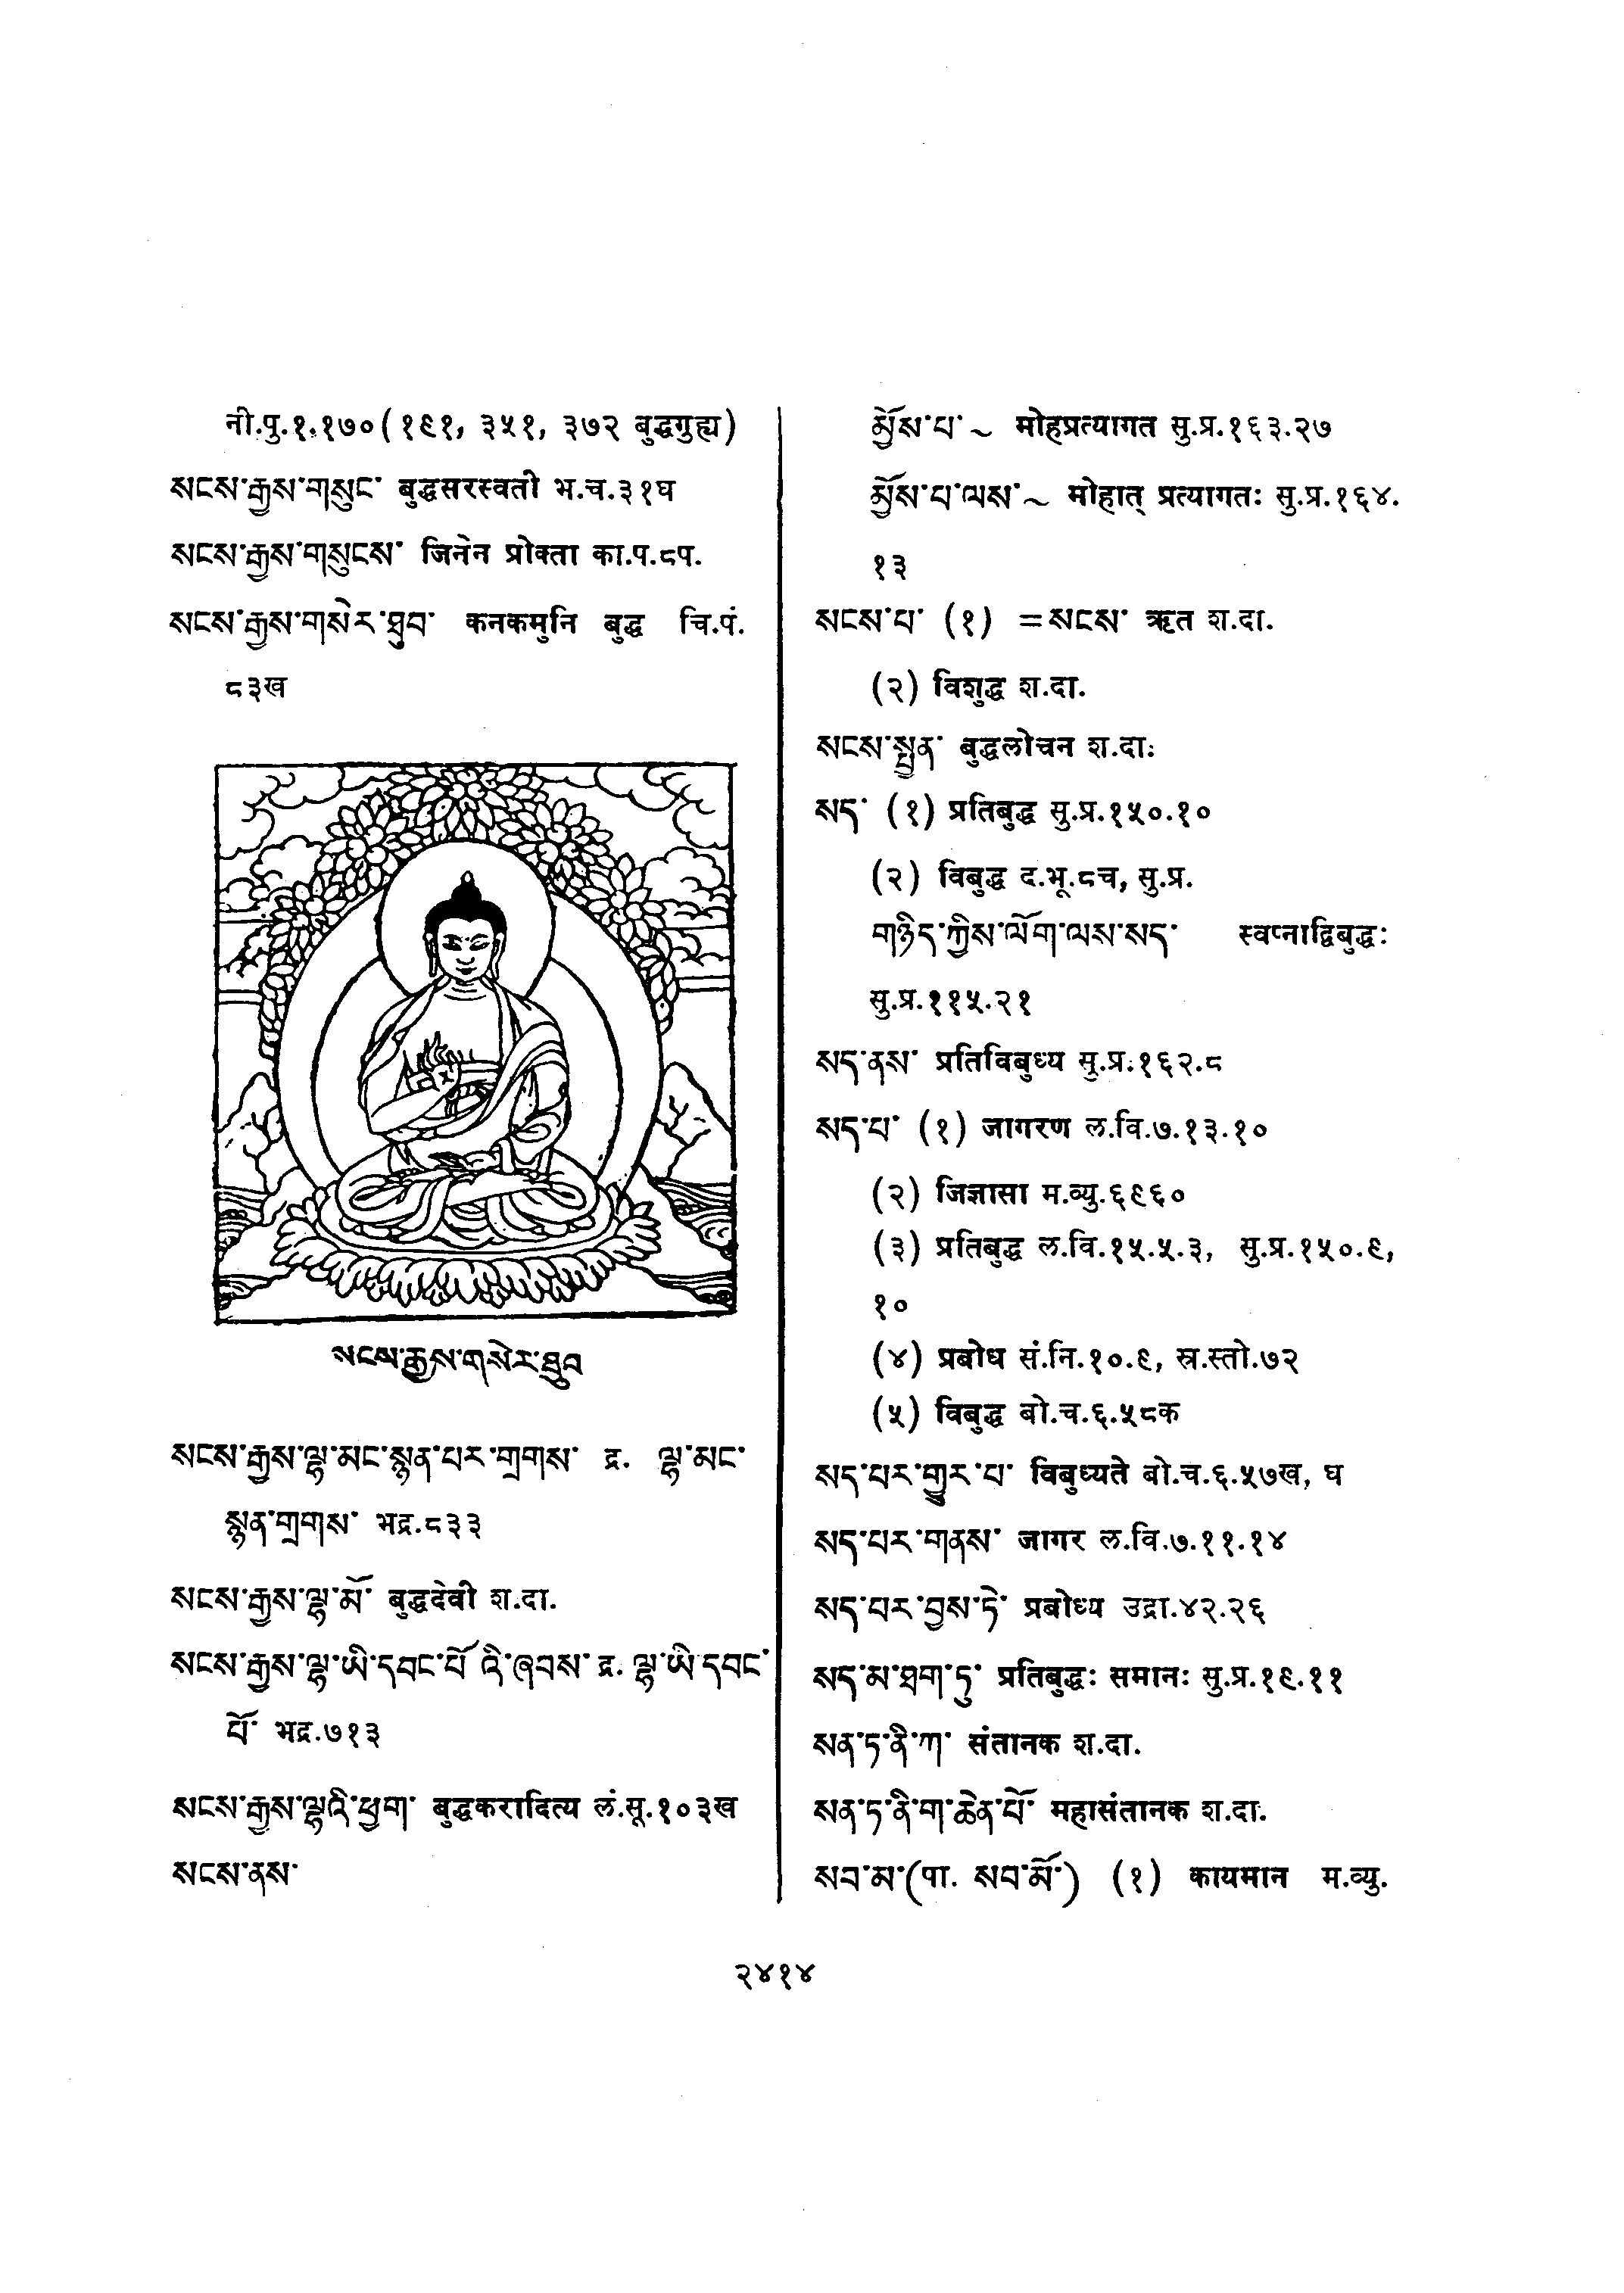 नी.पु.१.१७०(१९१, ३५१, ३७२ बुद्धगुह्य)
སངས་རྒྱས་གསུང་ बुद्धसरस्वती भ.च.३१घ
སངས་རྒྱས་གསུངས་ जिनेन प्रोक्ता का.प.८प.
སངས་རྒྱས་གསེར་ཐུབ་ कनकमुनि बुद्ध चि.पं.
८३ख
སངས་རྒྱས་གསེར་ཐུབ
སངས་རྒྱས་ལྷ་མང་སྙན་པར་གྲགས་ द्र. ལྷ་མང་
སྙན་གྲགས་ भद्र.८३३
སངས་རྒྱས་ལྷ་མོ་ बुद्धदेवी श.दा.
སངས་རྒྱས་ལྷ་ཡི་དབང་པོ་འི་ཞབས་ द्र. ལྷ་ཡི་དབང་
པོ་ भद्र.७१३
སངས་རྒྱས་ལྷའི་ཕྱག་ बुद्धकरादित्य लं.सू.१०३ख
སངས་ནས་
མྱོས་པ་ ~ मोहप्रत्यागत सु.प्र.१६३.२७
མྱོས་པ་ལས་ ~ मोहात् प्रत्यागतः सु.प्र.१६४.
१३
སངས་པ་ (१) =སངས་ ऋत श.दा.
(२) विशुद्ध श.दा.
སངས་སྤྱན་ बुद्धलोचन श.दा.
སད་ (१) प्रतिबुद्ध सु.प्र.१५०.१०
(२) विबुद्ध द.भू.८च, सु.प्र.
གཉིད་ཀྱིས་ལོག་ལས་སད་ स्वप्नाद्विबुद्धः
सु.प्र.११५.२१
སད་ནས་ प्रतिविबुध्य सु.प्र.१६२.८
སད་པ་ (१) जागरण ल.वि.७.१३.१०
(२) जिज्ञासा म.व्यु.६९६०
(३) प्रतिबुद्ध ल.वि.१५.५.३, सु.प्र.१५०.९,
१०
(४) प्रबोध सं.नि.१०.९, स्र.स्तो.७२
(५) विबुद्ध बो.च.६.५८क
སད་པར་གྱུར་པ་ विबुध्यते बो.च.६.५७ख, घ
སད་པར་གནས་ जागर ल.वि.७.११.१४
སད་པར་བྱས་ཏེ་ प्रबोध्य उद्रा.४२.२६
སད་མ་ཐག་ཏུ་ प्रतिबुद्धः समानः सु.प्र.१९.११
སན་ཏ་ནི་ཀ་ संतानक श.दा.
སན་ཏ་ནི་ག་ཆེན་པོ་ महासंतानक श.दा.
སབ་མ་(पा. སབ་མོ་) (१) कायमान म.व्यु.
२४१४